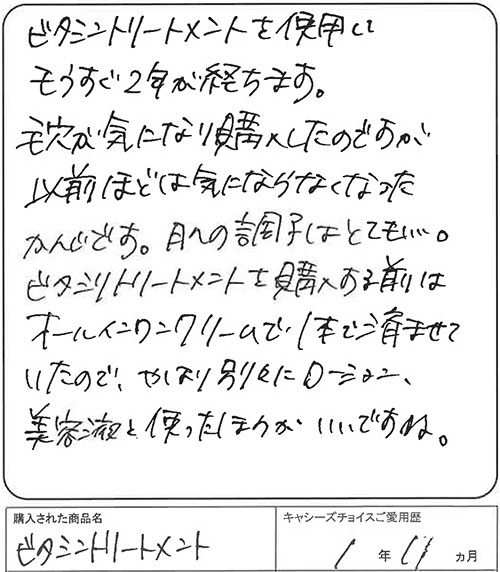 ビタミントリートメントを使用して
もうすぐ2年が経ちます。
毛穴が気になり購入したのですが
以前ほどは気にならなくなった
かんじです。肌の調子はとてもいい。
ビタミントリートメントを購入する前は
オールインワンクリームで、1本で済ませて
いたので、やはり別々にローション、
美容液と使ったほうがいいですね。
購入された商品名
キャシーズチョイスご愛用歴
ビタミントリートメント
1年11ヵ月